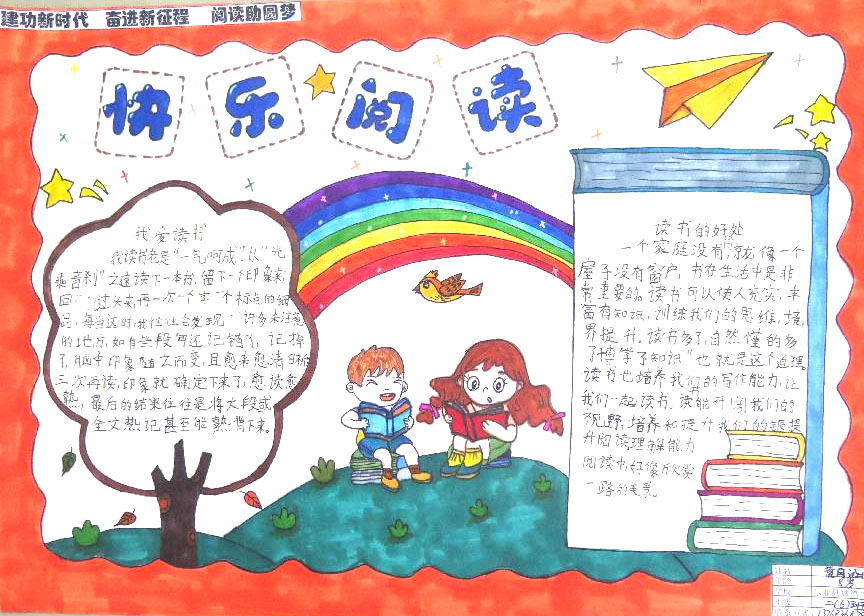 建功新时代 奋进新征程 阅读助圆梦
快乐阅读
我爱读书
我读书总是"一气呵成"以"光
之速读下一本书,留下一个印象
回过头来再一次一个字一个标点的细
品,每当这时,我往往会发现许多未注意
的地方,如有些段写还记错了,记掉
了,脑中印象随之而变,且愈来愈清晰
三次再读,印象就确定下来了,愈读愈
熟,最后的结果往往是将大段或
全文熟记甚至能熟背下来。
读书的好处
一个家庭没有就像一个
屋子没有窗户,书在生活中是非
常重要的。读书可以使人充实,丰
富有知识,训练我们的思维,境
界提升。读书多了,自然懂的多
了"博学了知识"也就是这个道理。
读书也培养我们的写作能力,让
我们一起读书。读能开阔我们的
视野,培养和提升我们的
升阅读理解能力
阅读书,好像欣赏
一路的美景。
姓名